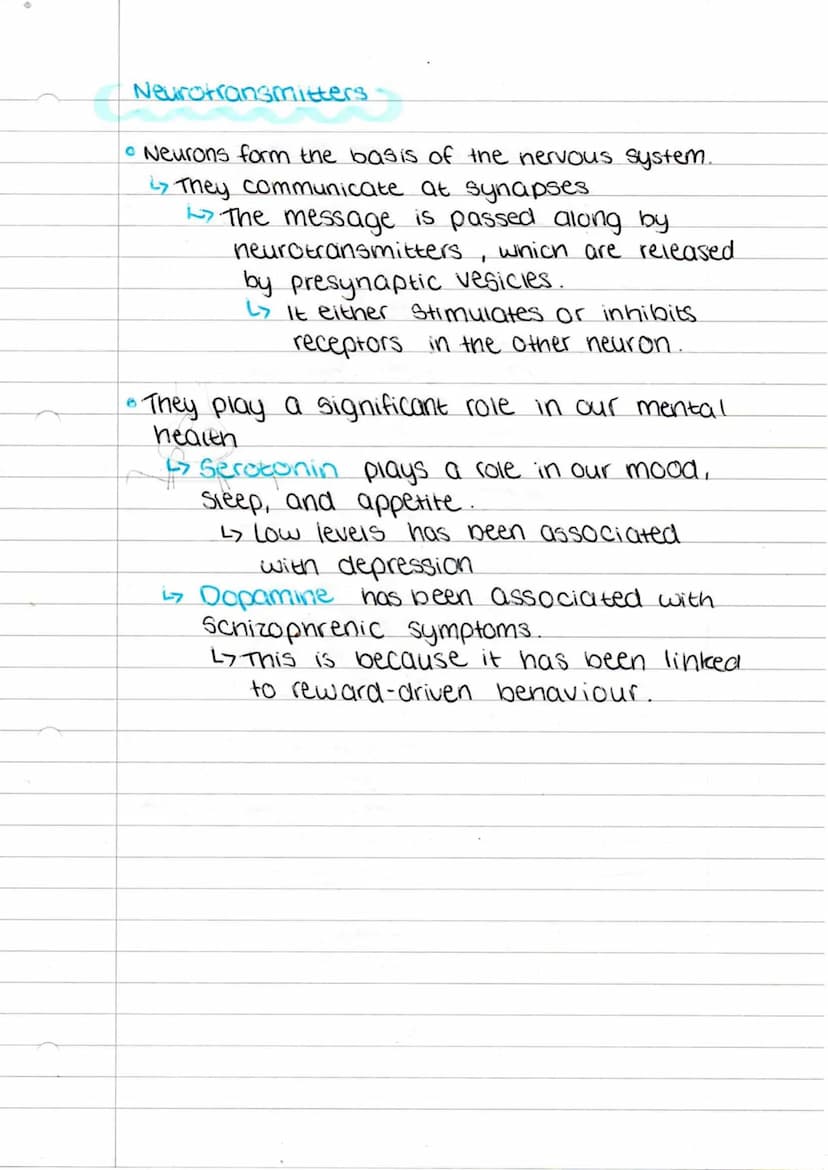 Neurotransmitters
° Neurons form the basis of the nervous system.
↳ They communicate at synapses
↳ The message is passed along by
neurotransmitters, which are released
by presynaptic vesicles.
↳ It either stimulates or inhibits
receptors in the other neuron.
° They play a significant role in our mental
health
↳ Serotonin plays a role in our mood,
sleep, and appetite.
↳ Low levels has been associated
with depression
↳ Dopamine has been associated with
schizophrenic symptoms.
↳ This is because it has been linked
to reward-driven behaviour.